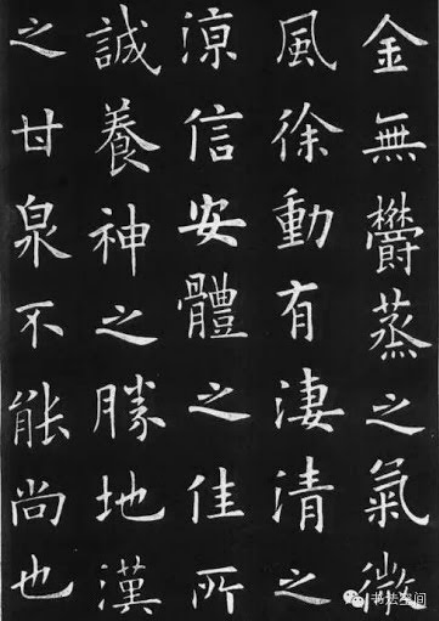 金無鬱蒸之氣微
風徐動有淒清之
涼信安體之佳所
誠養神之勝地漢
之甘泉不能尚也
书法空间